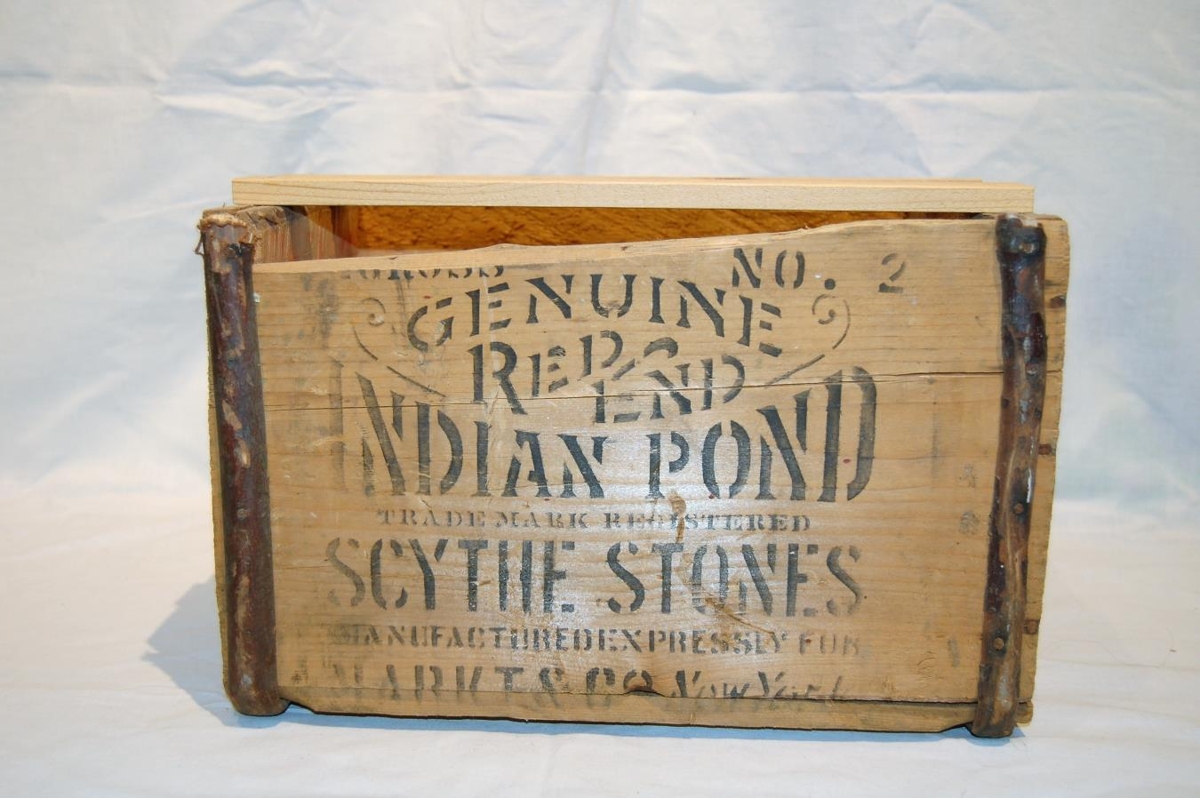 GROSS NO. 2
GENUINE
RED
END
INDIAN POND
TRADE MARK REGISTERED
SCYTHE STONES
MANUFACTURED EXPRESSLY FOR
MARKT & CO New York